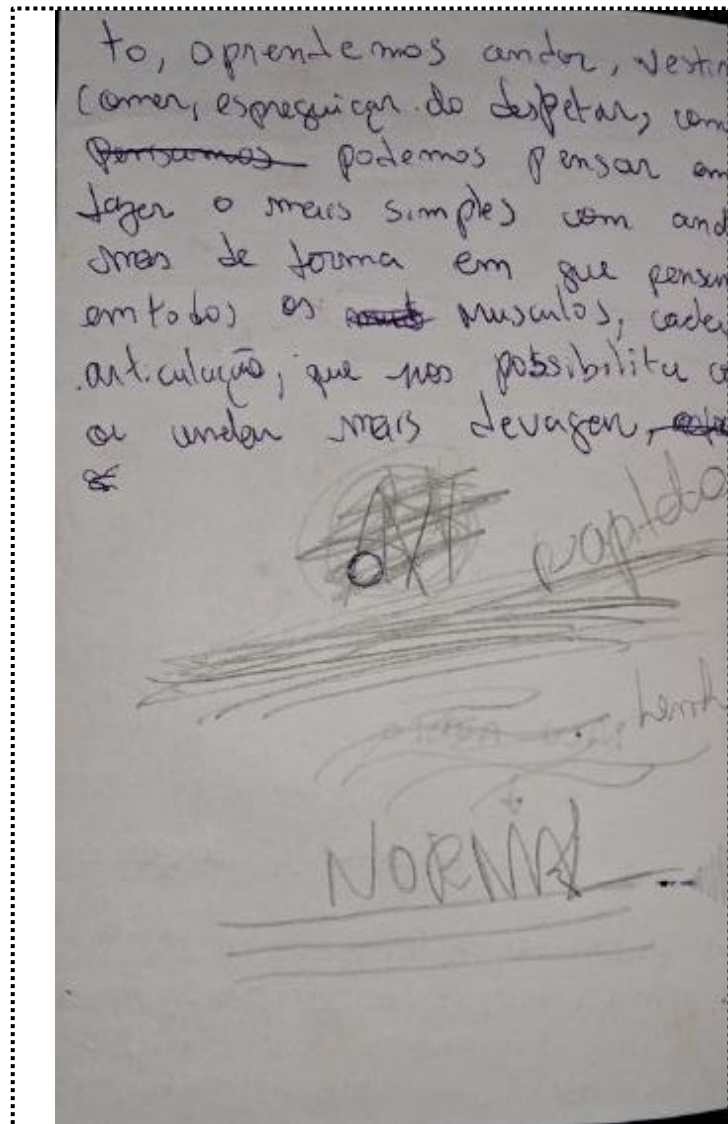 to, aprendemos andar, vestir
comer, espreguiçar do despetar, com
pensamos podemos pensar em
fazer o mais simples com and
mas de forma em que pensem
em todos os musculos, cada
articulação, que nos possibilita a
a andar mais devagar,
rapido
NORMAL